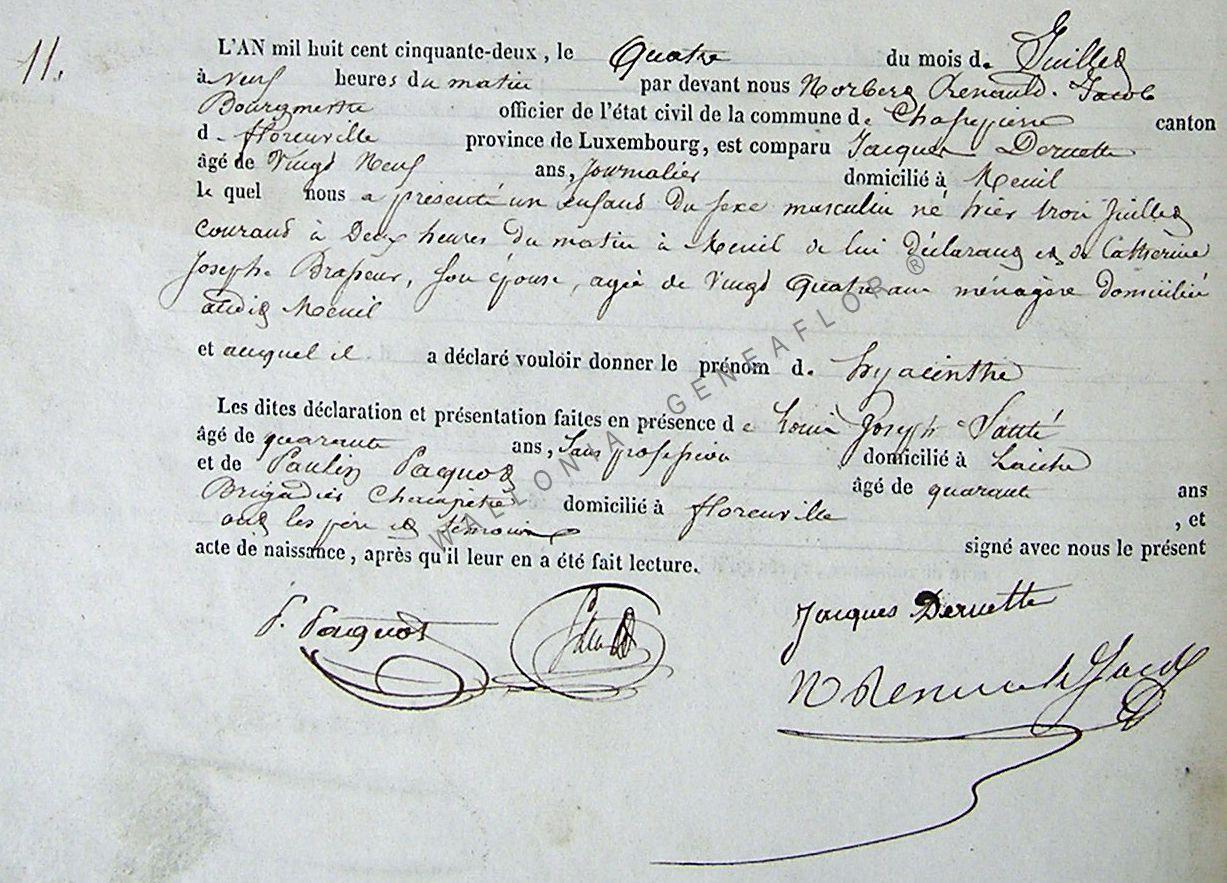 11.
L'AN mil huit cent cinquante-deux, le Quatre du mois de Juillet
à neuf heures du matin par devant nous Norbert Renauld-Jacob
Bourgmestre officier de l'état civil de la commune de Chassepierre canton
d. florenville province de Luxembourg, est comparu Jacques Deruette
âgé de Vingt Neuf ans, Journalier domicilié à
le quel nous a présenté un enfant du sexe masculin né hier trois Juillet
courant à Deux heures du matin à de lui déclarant et de Catherine
Joseph Brasseur, son épouse, agée de Vingt Quatre ans ménagère domiciliée
audit
et auquel il a déclaré vouloir donner le prénom d. hyacinthe
Les dites déclaration et présentation faites en présence de Louis Joseph
âgé de quarante ans, Sans profession domicilié à Laiche
et de Paulin Pacquot âgé de quarante ans
Brigadier Champêtre domicilié à florenville , et
ont les père et témoins signé avec nous le présent
acte de naissance, après qu'il leur en a été fait lecture.
P. Pacquot
Jacques Deruette
N Renauld Jacob
WALLONIA GENEAFLOR ®